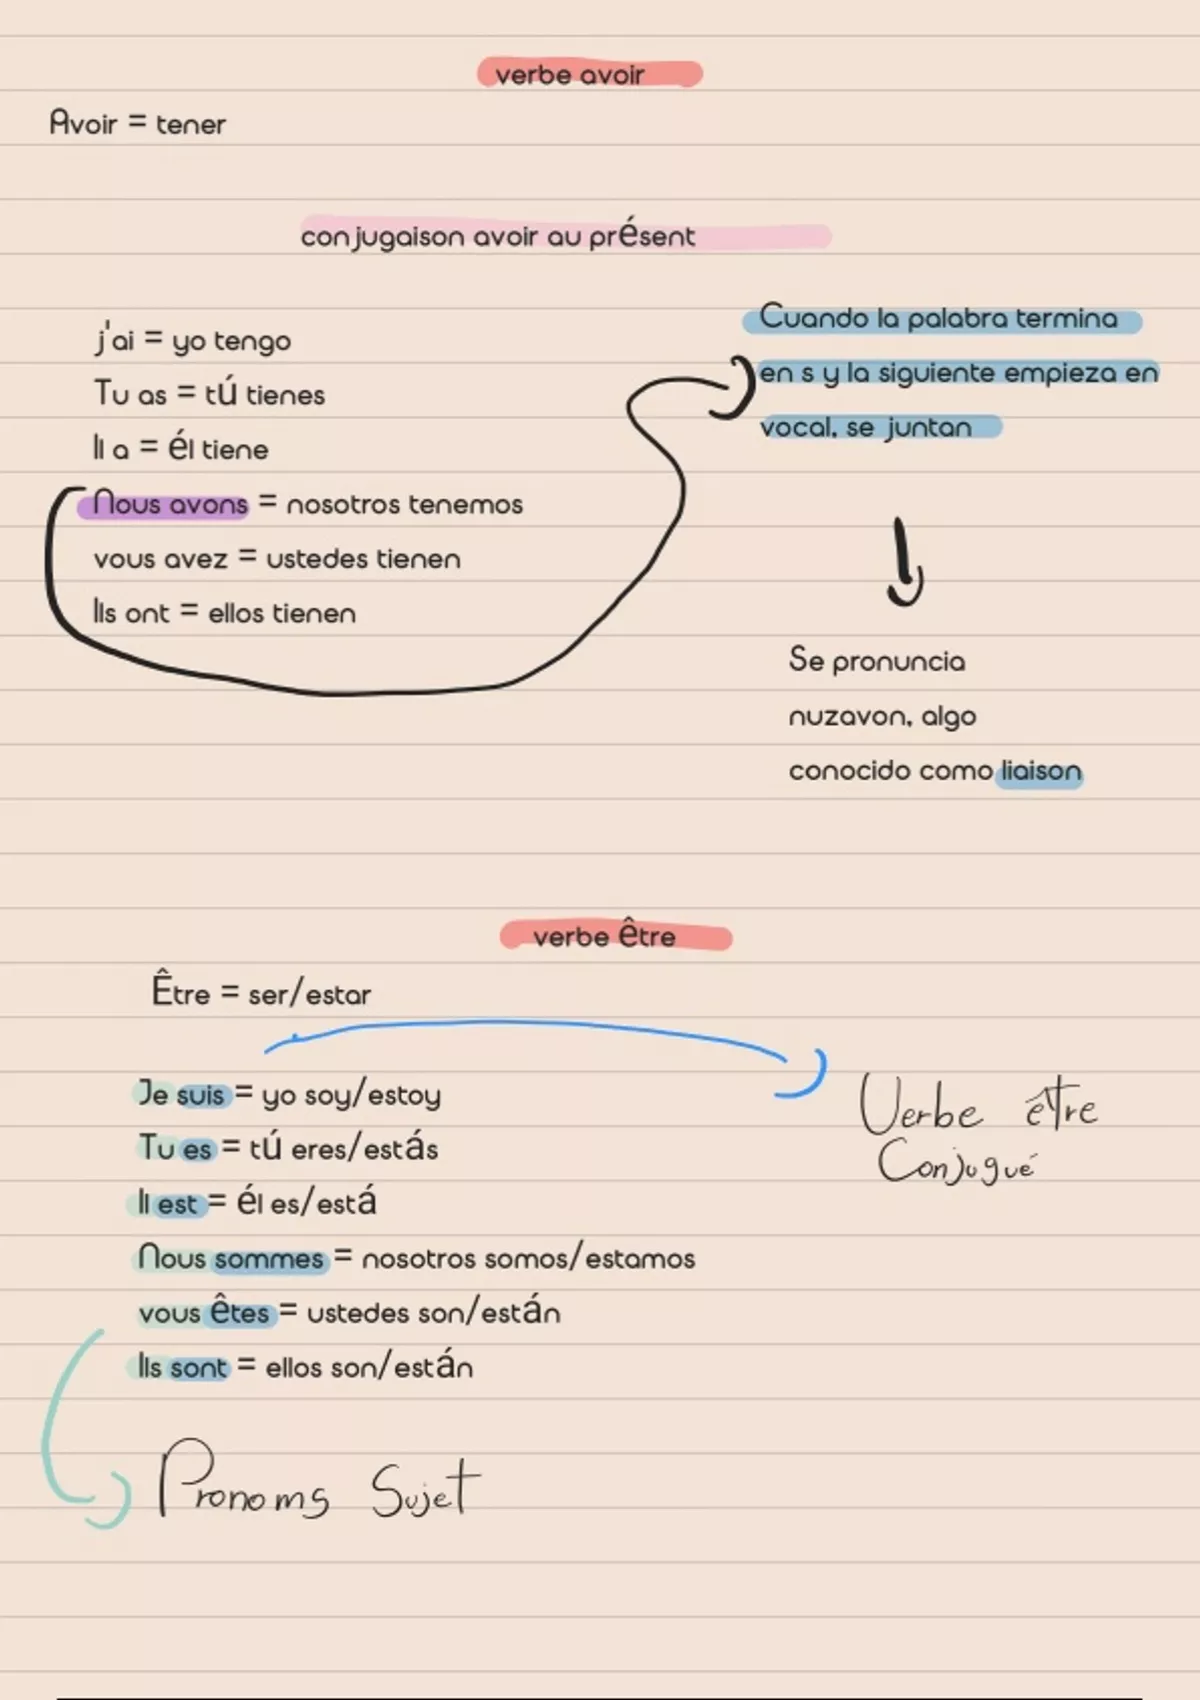 verbe avoir
Avoir = tener
conjugaison avoir au présent
j'ai = yo tengo
Tu as = tú tienes
Il a = él tiene
Nous avons = nosotros tenemos
vous avez = ustedes tienen
Ils ont = ellos tienen
Cuando la palabra termina
en s y la siguiente empieza en
vocal, se juntan
Se pronuncia
nuzavon, algo
conocido como liaison
verbe être
Être = ser/estar
Je suis = yo soy/estoy
Tu es = tú eres/estás
Il est = él es/está
Nous sommes = nosotros somos/estamos
vous êtes = ustedes son/están
Ils sont = ellos son/están
Verbe être
Conjugué
Pronoms Sujet